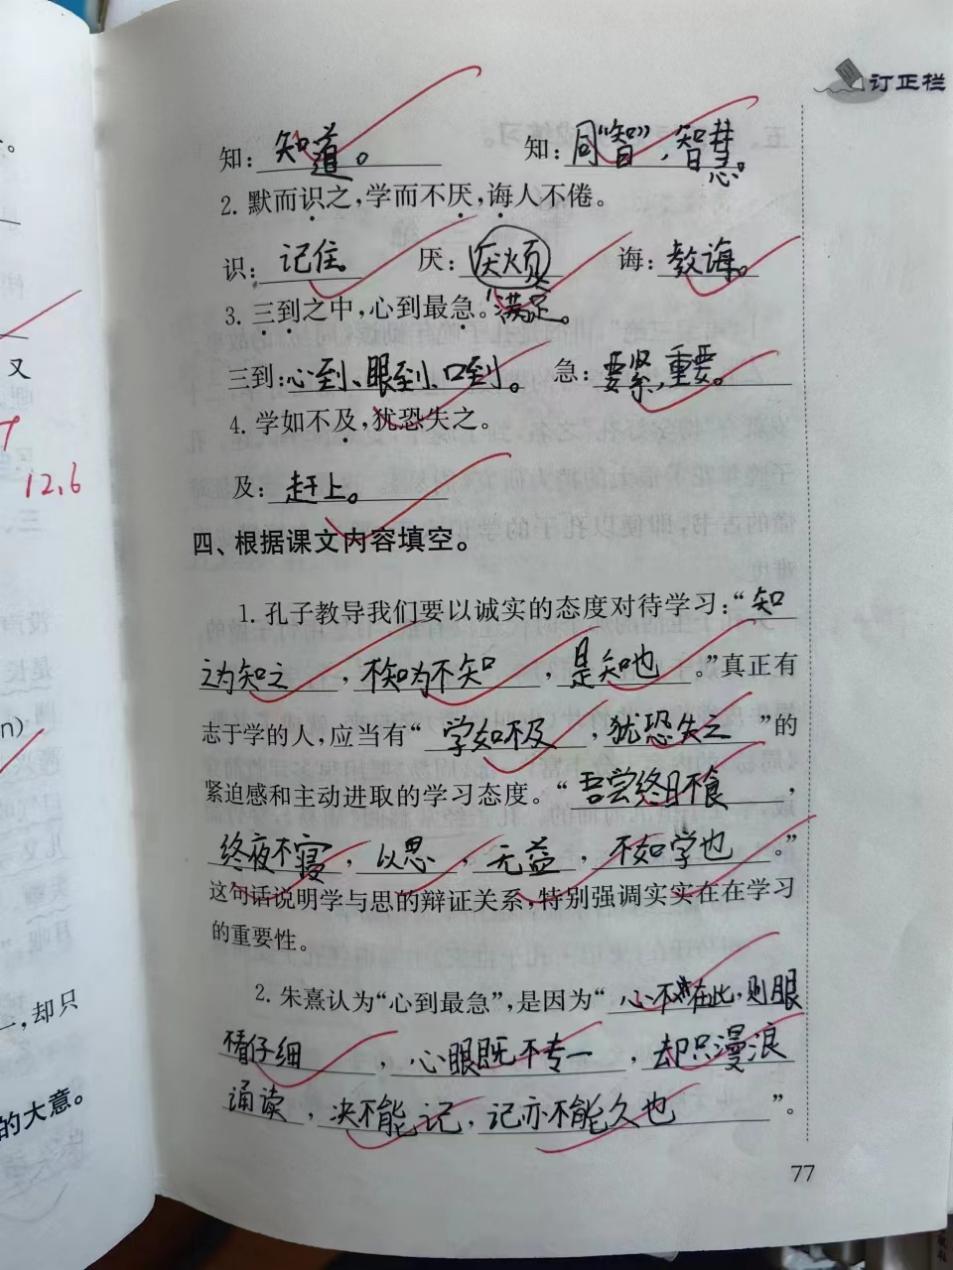 订正栏
知：知道。 知：同“智”，智慧。
2. 默而识之，学而不厌，诲人不倦。
识：记住。 厌：厌烦 诲：教诲。
满足。
3. 三到之中，心到最急。
三到：心到、眼到、口到。 急：要紧，重要。
4. 学如不及，犹恐失之。
及：赶上。
四、根据课文内容填空。
1. 孔子教导我们要以诚实的态度对待学习：“知
之为知之，不知为不知，是知也。”真正有
志于学的人，应当有“学如不及，犹恐失之”的
紧迫感和主动进取的学习态度。“吾尝终日不食，
终夜不寝，以思，无益，不如学也。”
这句话说明学与思的辩证关系，特别强调实实在在学习
的重要性。
2. 朱熹认为“心到最急”，是因为“心不在此，则眼
看仔细，心眼既不专一，却只漫浪
诵读，决不能记，记亦不能久也”。
77
又
12.6
三、
n)
一，却只
的大意。